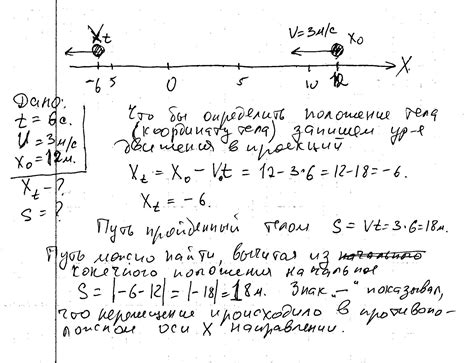 Xt V=3м/с X₀
-6 5 0 5 10 12 X
Дано:
t = 6с.
V = 3м/с
X₀ = 12м.
Xt - ?
S = ?
Что бы определить положение тела
(координату тела) запишем ур-е
движения в проекций
Xt = X₀ - V₀t = 12-3·6 = 12-18 = -6.
Xt = -6.
Путь пройденный телом S = Vt = 3·6 = 18м.
Путь можно найти, вычитая из начального
конечного положения начальное
S = |-6-12| = |-18| = 18м. Знак „-" показывал,
что перемещение происходило в противопо-
ложном оси X направлении.